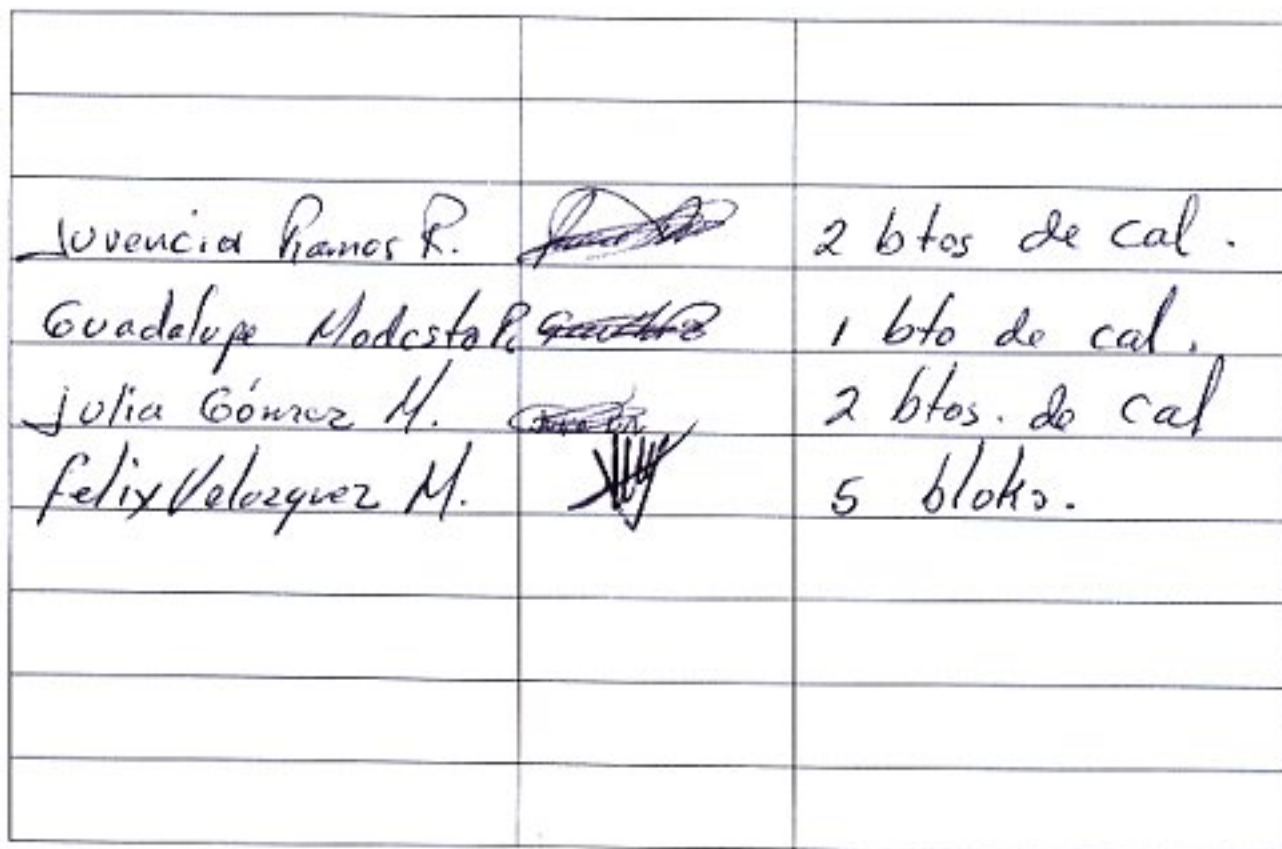 Juvencia Ramos R. 2 btos de cal.
Guadalupe Modesta R. 1 bto de cal.
Julia Gómez M. 2 btos. de cal
Felix Velazquez M. 5 bloks.